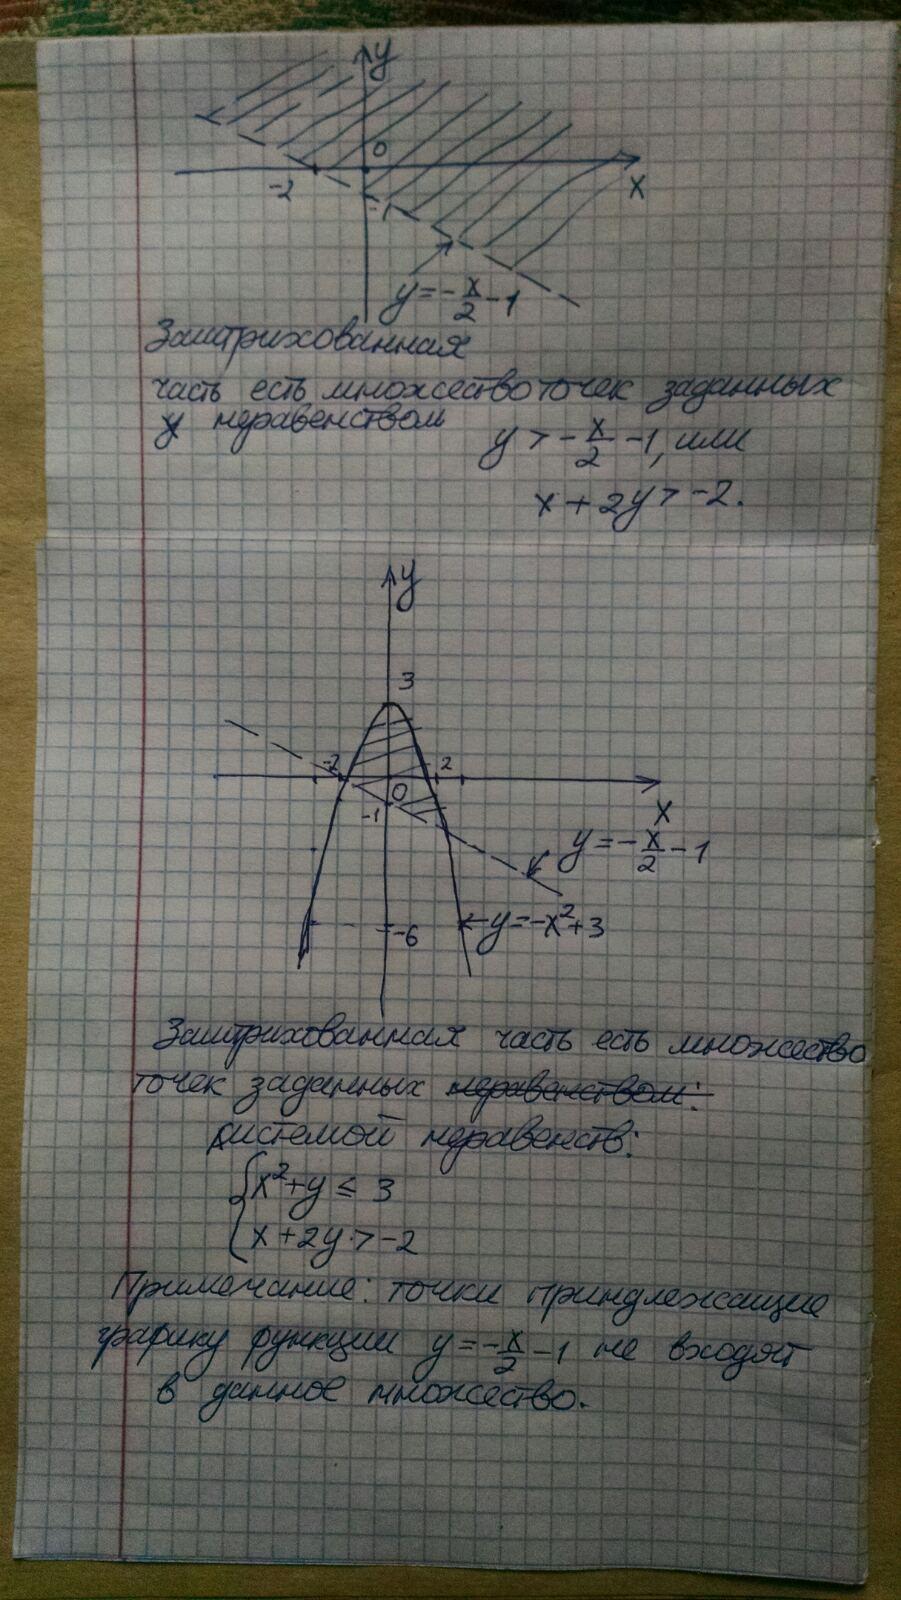 y
0
-2
x
-1
y = -x/2 - 1
Заштрихованная
часть есть множество точек заданных
неравенством
y > -x/2 - 1, или
x + 2y > -2.
y
3
-2
2
0
-1
x
y = -x/2 - 1
y = -x²+3
-6
Заштрихованная часть есть множество
точек заданных неравенством:
системой неравенств:
{x²+y ≤ 3
x + 2y > -2
Примечание: точки приндлежащие
графику функции y = -x/2 - 1 не входят
в данное множество.